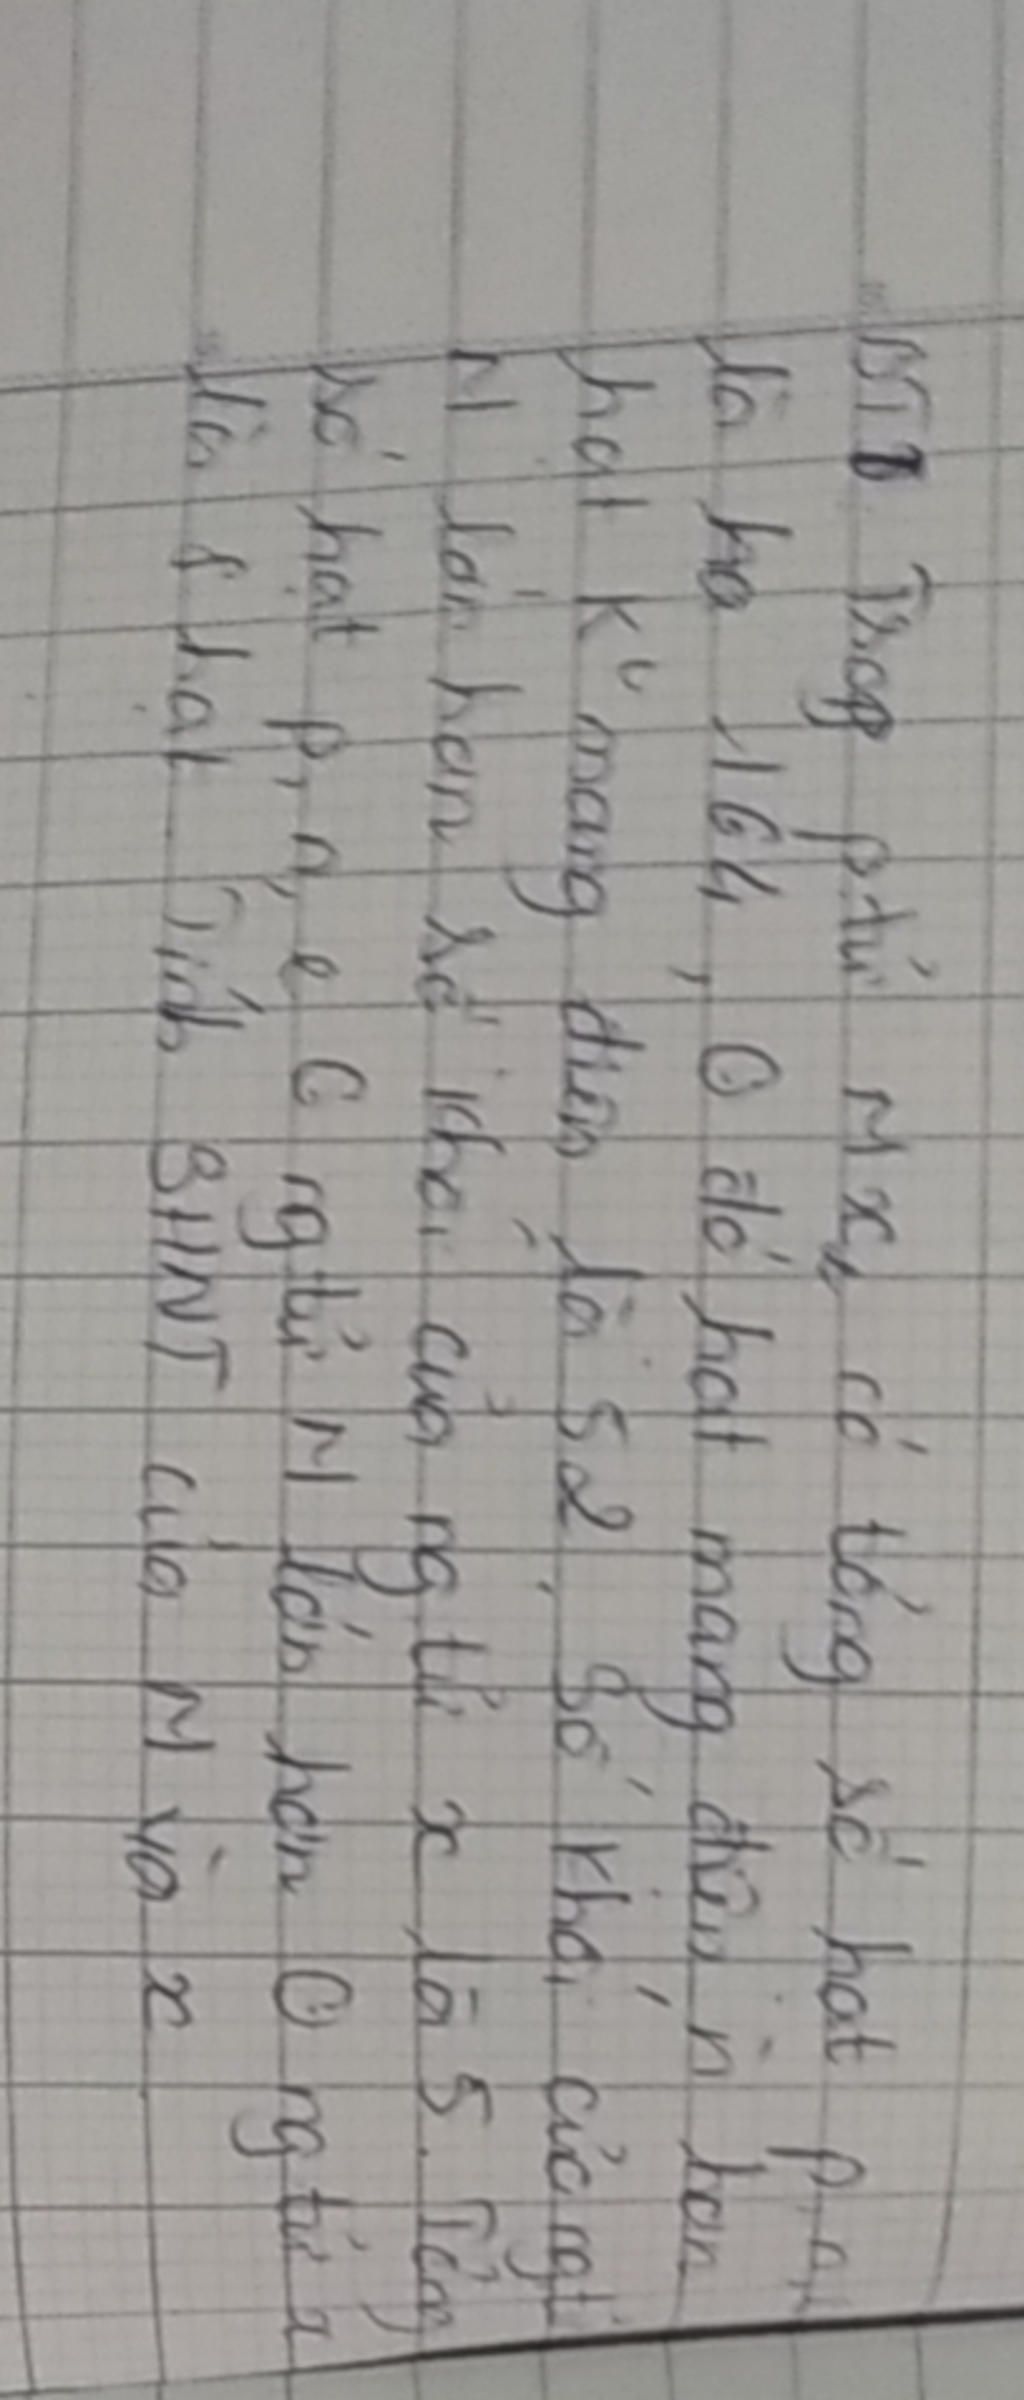 BT1 Trog ptử Mx₂ có tổng số hạt p,n,
là ha 164, O đó hạt mang điện n hơn
hạt k mang điện là 52. Số khối của ngt
M lớn hơn số khối của ng tử x là 5. Tổng
số hạt p, n, e C ng tử M lớn hơn O ng tử x
là 8 hạt. Tính SHNT của M và x